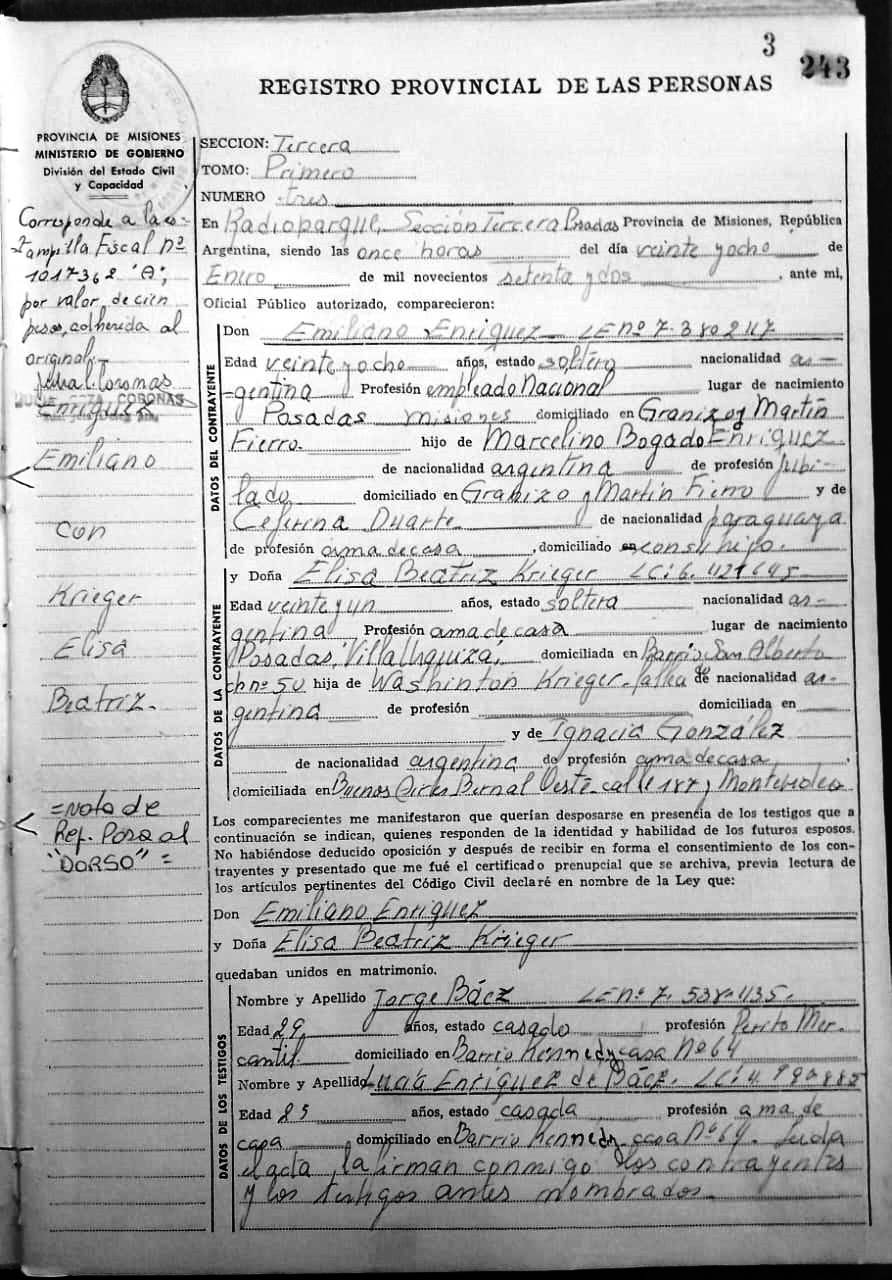 3
243
REGISTRO PROVINCIAL DE LAS PERSONAS
PROVINCIA DE MISIONES
MINISTERIO DE GOBIERNO
División del Estado Civil
y Capacidad
Corresponde a la es-
tampilla Fiscal Nº
1017362 "A",
por valor de cien
pesos, adherida al
original.-
CORONAS
Enriquez
Emiliano
con
Krieger
Elisa
Beatriz.-
=Nota de
Rep. Pasa al
"DORSO"=
SECCION: Tercera
TOMO: Primero
NUMERO tres
En Radioparque, Sección Tercera Posadas Provincia de Misiones, República
Argentina, siendo las once horas del día veinte y ocho de
Enero de mil novecientos setenta y dos, ante mi,
Oficial Público autorizado, comparecieron:
DATOS DEL CONTRAYENTE
Don Emiliano Enriquez LE nº 7.380247
Edad veinte y ocho años, estado soltero nacionalidad ar-
gentina Profesión empleado Nacional lugar de nacimiento
Posadas Misiones domiciliado en Granizo y Martín
Fierro. hijo de Marcelino Bogado Enriquez
de nacionalidad argentina de profesión jubi-
lado domiciliado en Granizo y Martin Fierro y de
Ceferina Duarte de nacionalidad paraguaya
de profesión ama de casa, domiciliado en con su hijo.
DATOS DE LA CONTRAYENTE
y Doña Elisa Beatriz Krieger LC: 6.421645
Edad veinte y un años, estado soltera nacionalidad ar-
gentina Profesión ama de casa lugar de nacimiento
Posadas, Villa Urquiza, domiciliada en Barrio San Alberto
ch nº 50 hija de Washinton Krieger.- de nacionalidad ar-
gentina de profesión domiciliada en
y de Ignacia González
de nacionalidad argentina de profesión ama de casa,
domiciliada en Buenos Aires Bernal Oeste calle 187 y Montevideo
Los comparecientes me manifestaron que querían desposarse en presencia de los testigos que a
continuación se indican, quienes responden de la identidad y habilidad de los futuros esposos.
No habiéndose deducido oposición y después de recibir en forma el consentimiento de los con-
trayentes y presentado que me fué el certificado prenupcial que se archiva, previa lectura de
los artículos pertinentes del Código Civil declaré en nombre de la Ley que:
Don Emiliano Enriquez
y Doña Elisa Beatriz Krieger
quedaban unidos en matrimonio.
DATOS DE LOS TESTIGOS
Nombre y Apellido Jorge Báez LE nº 7.538.435.
Edad 29 años, estado casado profesión Perito Mer-
cantil domiciliado en Barrio Kennedy casa Nº 64
Nombre y Apellido Enriquez de Báez. LC: 4.
Edad 25 años, estado casada profesión ama de
casa domiciliado en Barrio Kennedy casa Nº 64. Leida
el acta, la firman conmigo los contrayentes
y los testigos antes nombrados.-